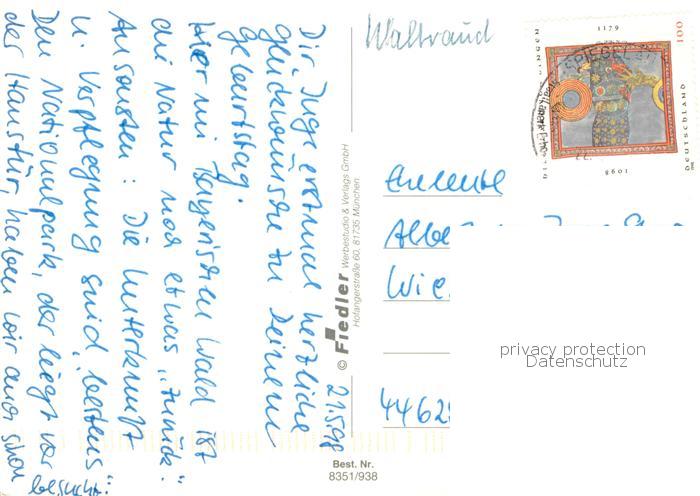 Dir, Inge erstmal herzliche
Glückwünsche zu Deinem
Geburtstag.
Hier im Bayerischen Wald ist
die Natur noch etwas „zurück".
Ansonsten: Die Unterkunft
u. Verpflegung sind „bestens".
Den Nationalpark, der liegt vor
der Haustür, haben wir auch schon
besucht.
21.5.98
Waltraud
© Fiedler Werbestudio & Verlags GmbH
Hofangerstraße 60, 81735 München
Best. Nr.
8351/938
1179
100
DEUTSCHLAND
1098
Eheleute
Wie
4462
privacy protection
Datenschutz